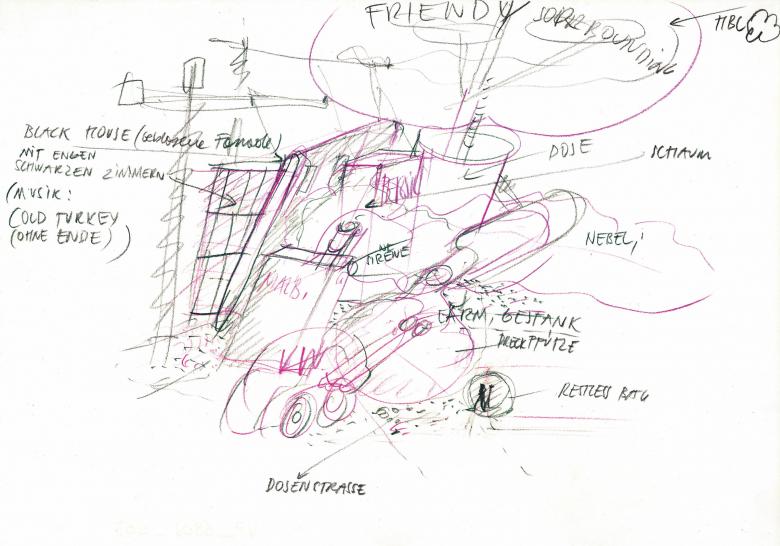 FRIENDLY
SORROUNDING
HBC
BLACK HOUSE (Geblasene Fassade)
MIT ENGEN
SCHWARZEN ZIMMERN
(MUSIK:
COLD TURKEY
(OHNE ENDE))
DOSE
SCHAUM
NEBEL,
SIRENE
LÄRM, GESTANK
DRECKPFÜTZE
DOSENSTRASSE